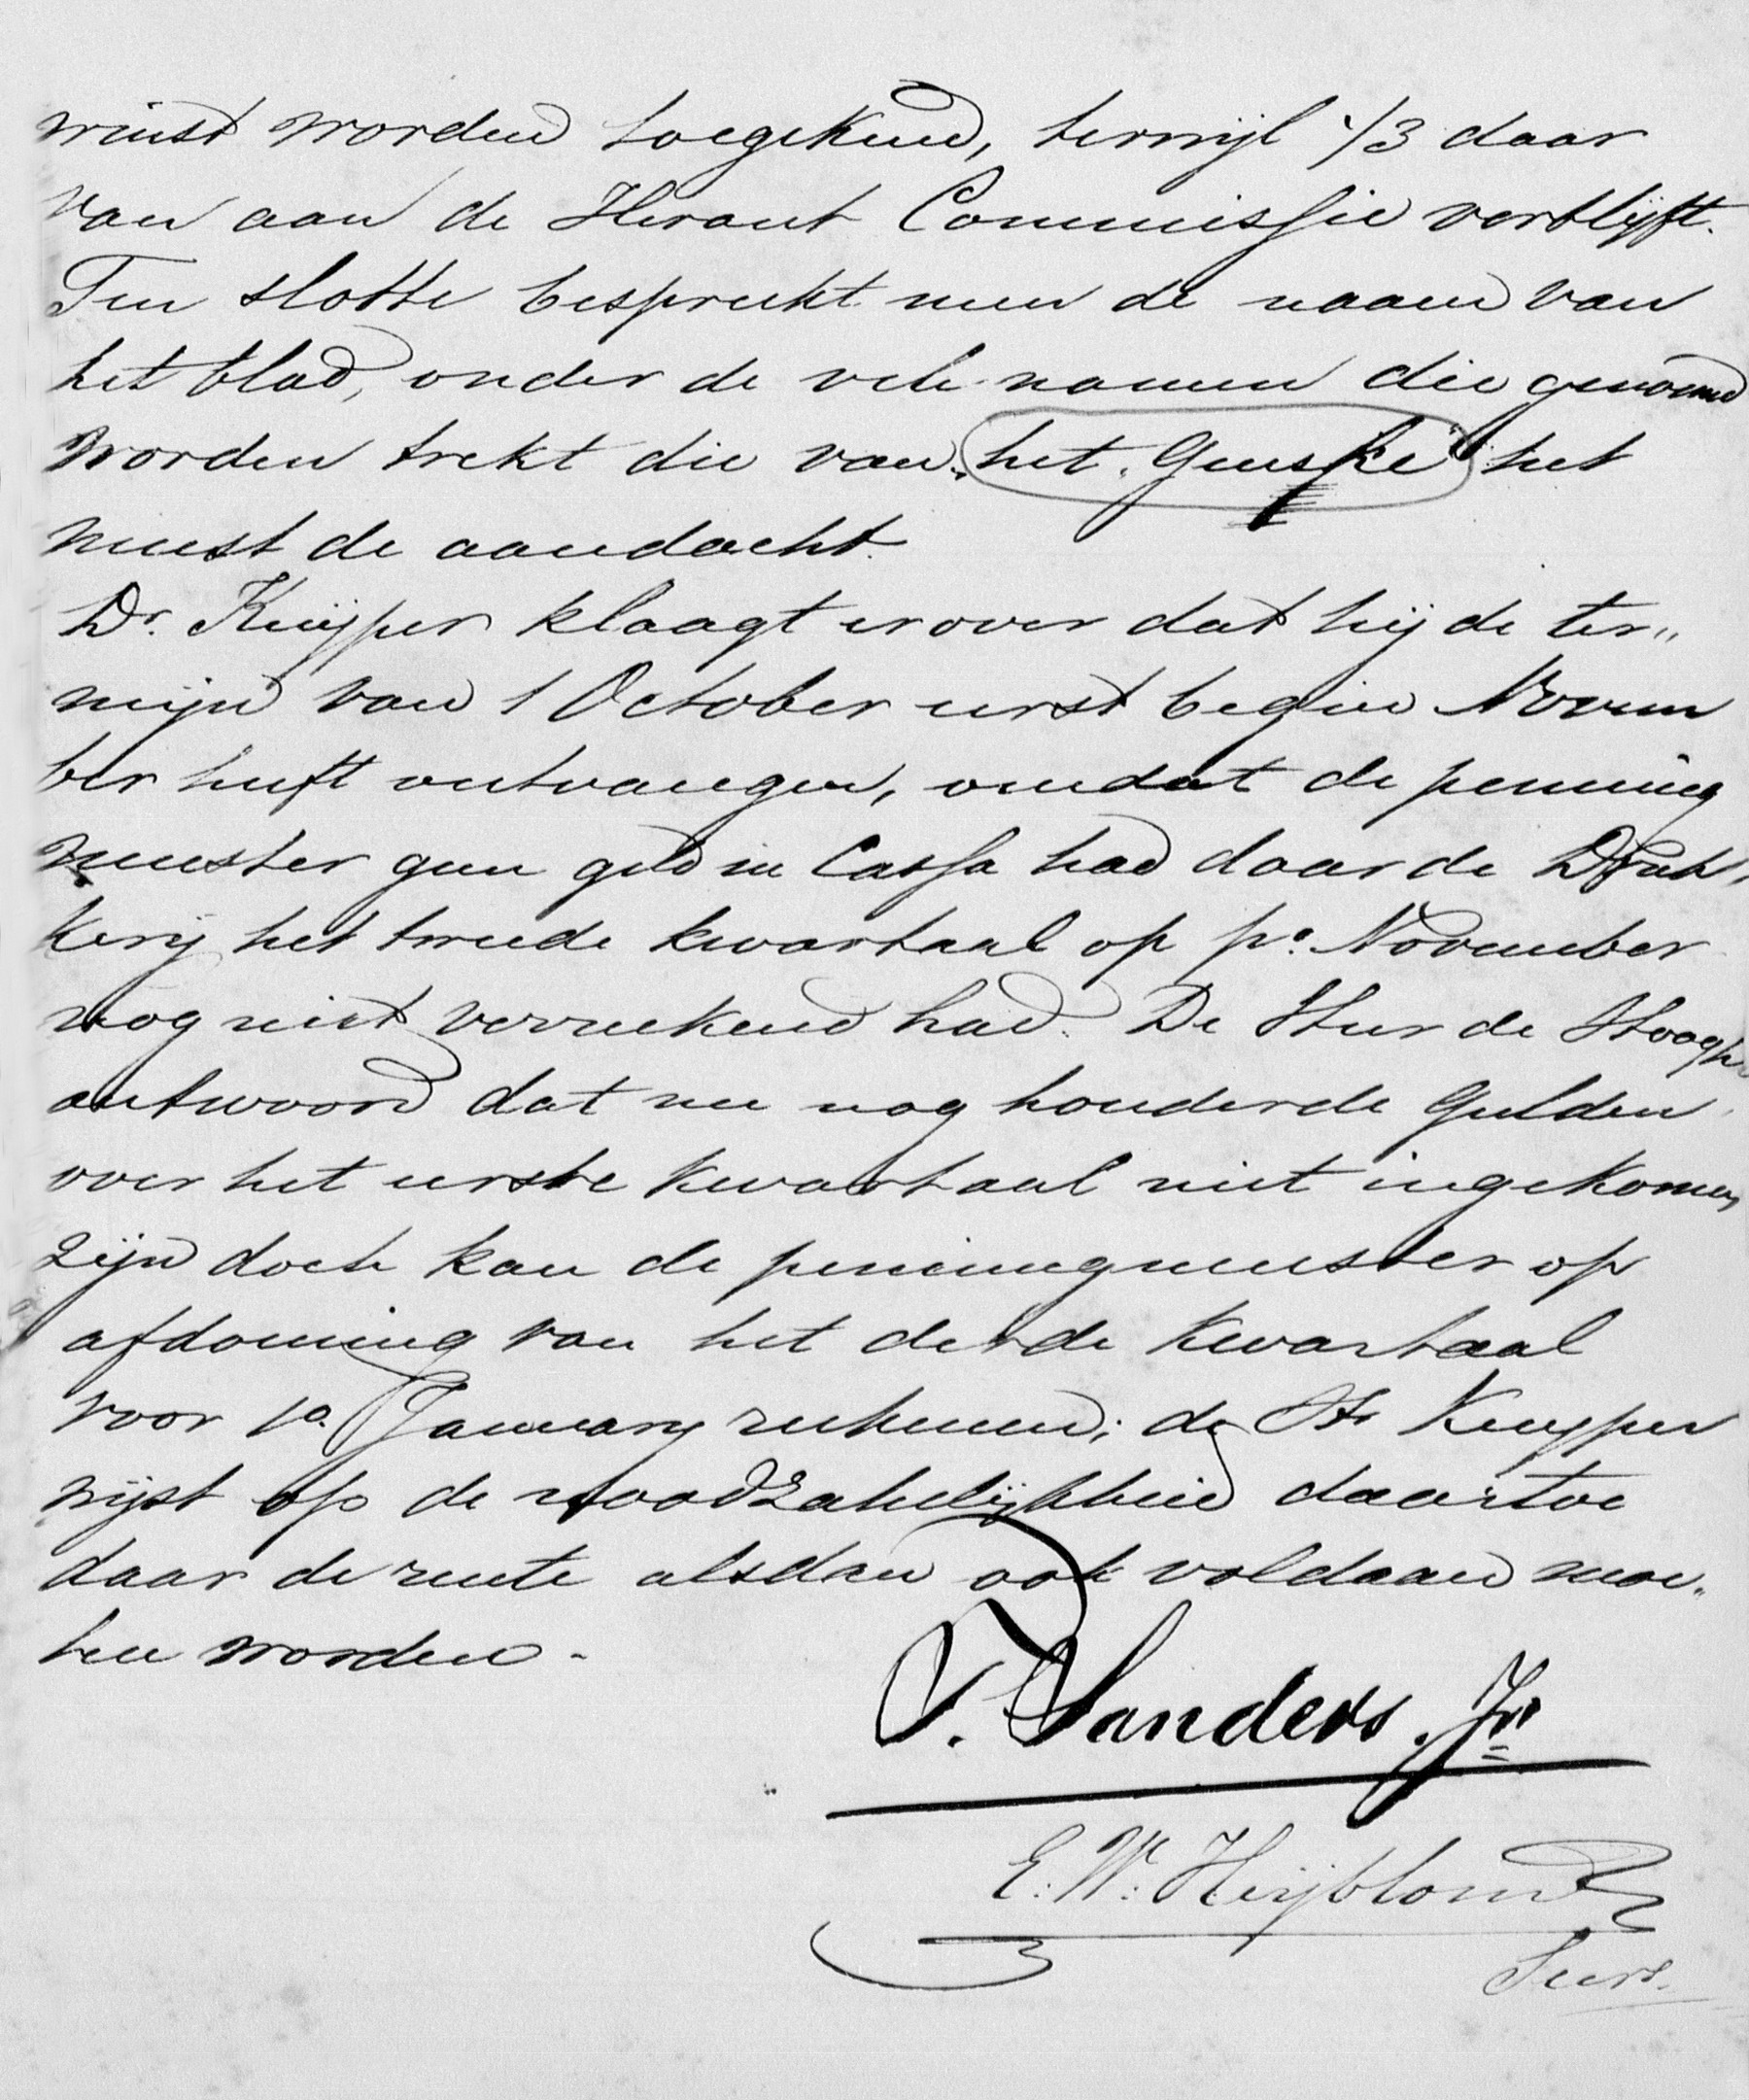 winst worden toegekend, terwijl 1/3 daar
van aan de Heraut Commissie verblijft.
Ten slotte bespreekt men de naam van
het blad, onder de vele namen die genoemd
worden trekt die van „het Geuske" het
meest de aandacht.
Dr. Kuijper klaagt erover dat hij de ter„
mijn van 1 October eerst begin Novem
ber heeft ontvangen, omdat de penning
meester geen geld in Cassa had daar de Druk„
kerij het tweede kwartaal op po. November
nog niet verrekend had. De Heer de Hoogh
antwoord dat nu nog honderde Gulden
over het eerste kwartaal niet ingekomen
zijn doch kan de penningmeester op
afdoening van het derde kwartaal
voor 1o. January rekenen; de Hr Kuyper
wijst op de noodzakelijkheid daartoe
daar de rente alsdan ook voldaan moe„
ten worden.
T. Sanders. Jr
E. W. Heijblom
Secr.